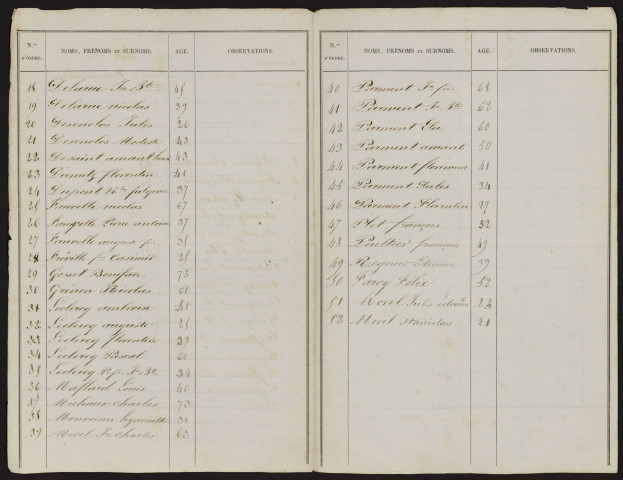 N.os D'ORDRE. NOMS, PRÉNOMS ET SURNOMS. AGE. OBSERVATIONS.
18 Delarue Jn Bte 45
19 Delarue nicolas 39
20 Desenclos Jules 26
21 Desenclos Modeste 43
22 Desaint amant 43
23 Dumetz florentin 41
24 Dupont 37
25 Fauvelle nicolas 67
26 Fauvelle Pierre antoine 37
27 Fauvelle august 35
28 Fréville Casimir 25
29 Gosset Boniface 72
30 Grénon Nicolas 61
31 Leclercq ambroise 41
32 Leclercq auguste 25
33 Leclercq florentin 39
34 Leclercq Pascal 60
35 Leclercq Jn Bte 34
36 Maflard Louis 40
37 Michaux Charles 73
38 hyacinthe 31
39 Morel Jn Charles 63
N.os D'ORDRE. NOMS, PRÉNOMS ET SURNOMS. AGE. OBSERVATIONS.
40 Parmont Jn fois 68
41 Parmont Jn Bte 62
42 Parmont Eloi 60
43 Parmont amant 50
44 Parmont florimond 41
45 Parmont Jules 34
46 Parmont Florentin 27
47 Plet françois 32
48 Poultier françois 49
49 Regnier Etienne 39
50 Félix 52
51 Morel Jules édouard 23
52 Morel Stanislas 21